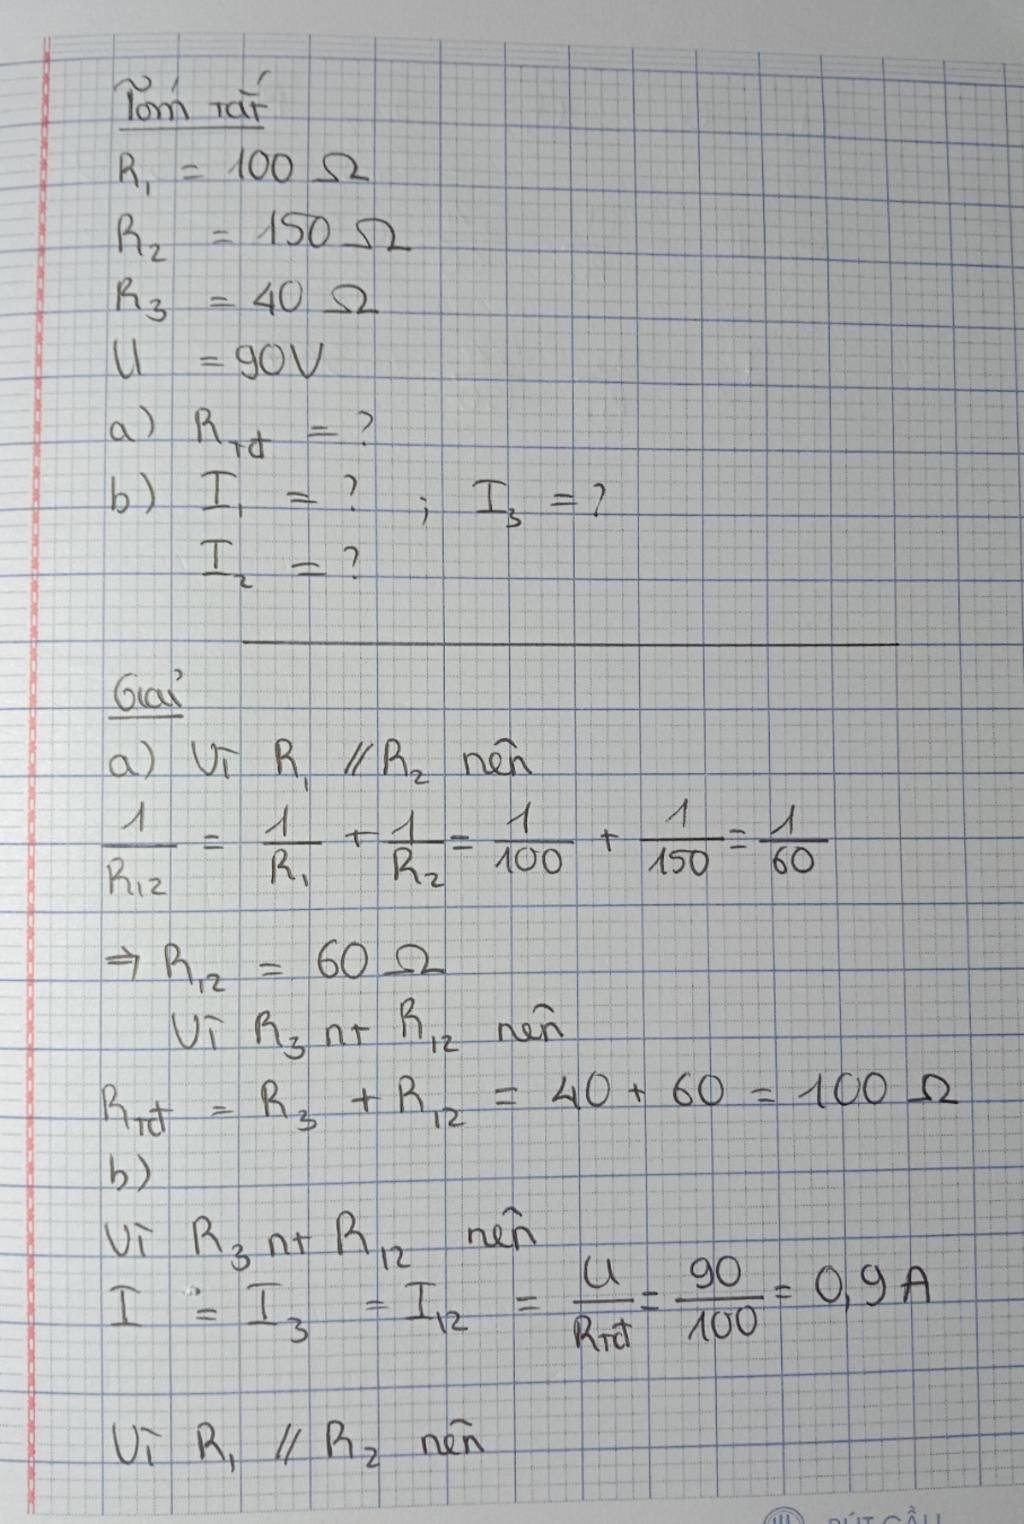 Tóm tắt
R₁ = 100 Ω
R₂ = 150 Ω
R₃ = 40 Ω
U = 90V
a) Rtđ = ?
b) I₁ = ? ; I₃ = ?
I₂ = ?
Giải
a) Vì R₁ // R₂ nên
1/R₁₂ = 1/R₁ + 1/R₂ = 1/100 + 1/150 = 1/60
⇒ R₁₂ = 60 Ω
Vì R₃ nt R₁₂ nên
Rtđ = R₃ + R₁₂ = 40 + 60 = 100 Ω
b)
Vì R₃ nt R₁₂ nên
I = I₃ = I₁₂ = U/Rtđ = 90/100 = 0,9 A
Vì R₁ // R₂ nên